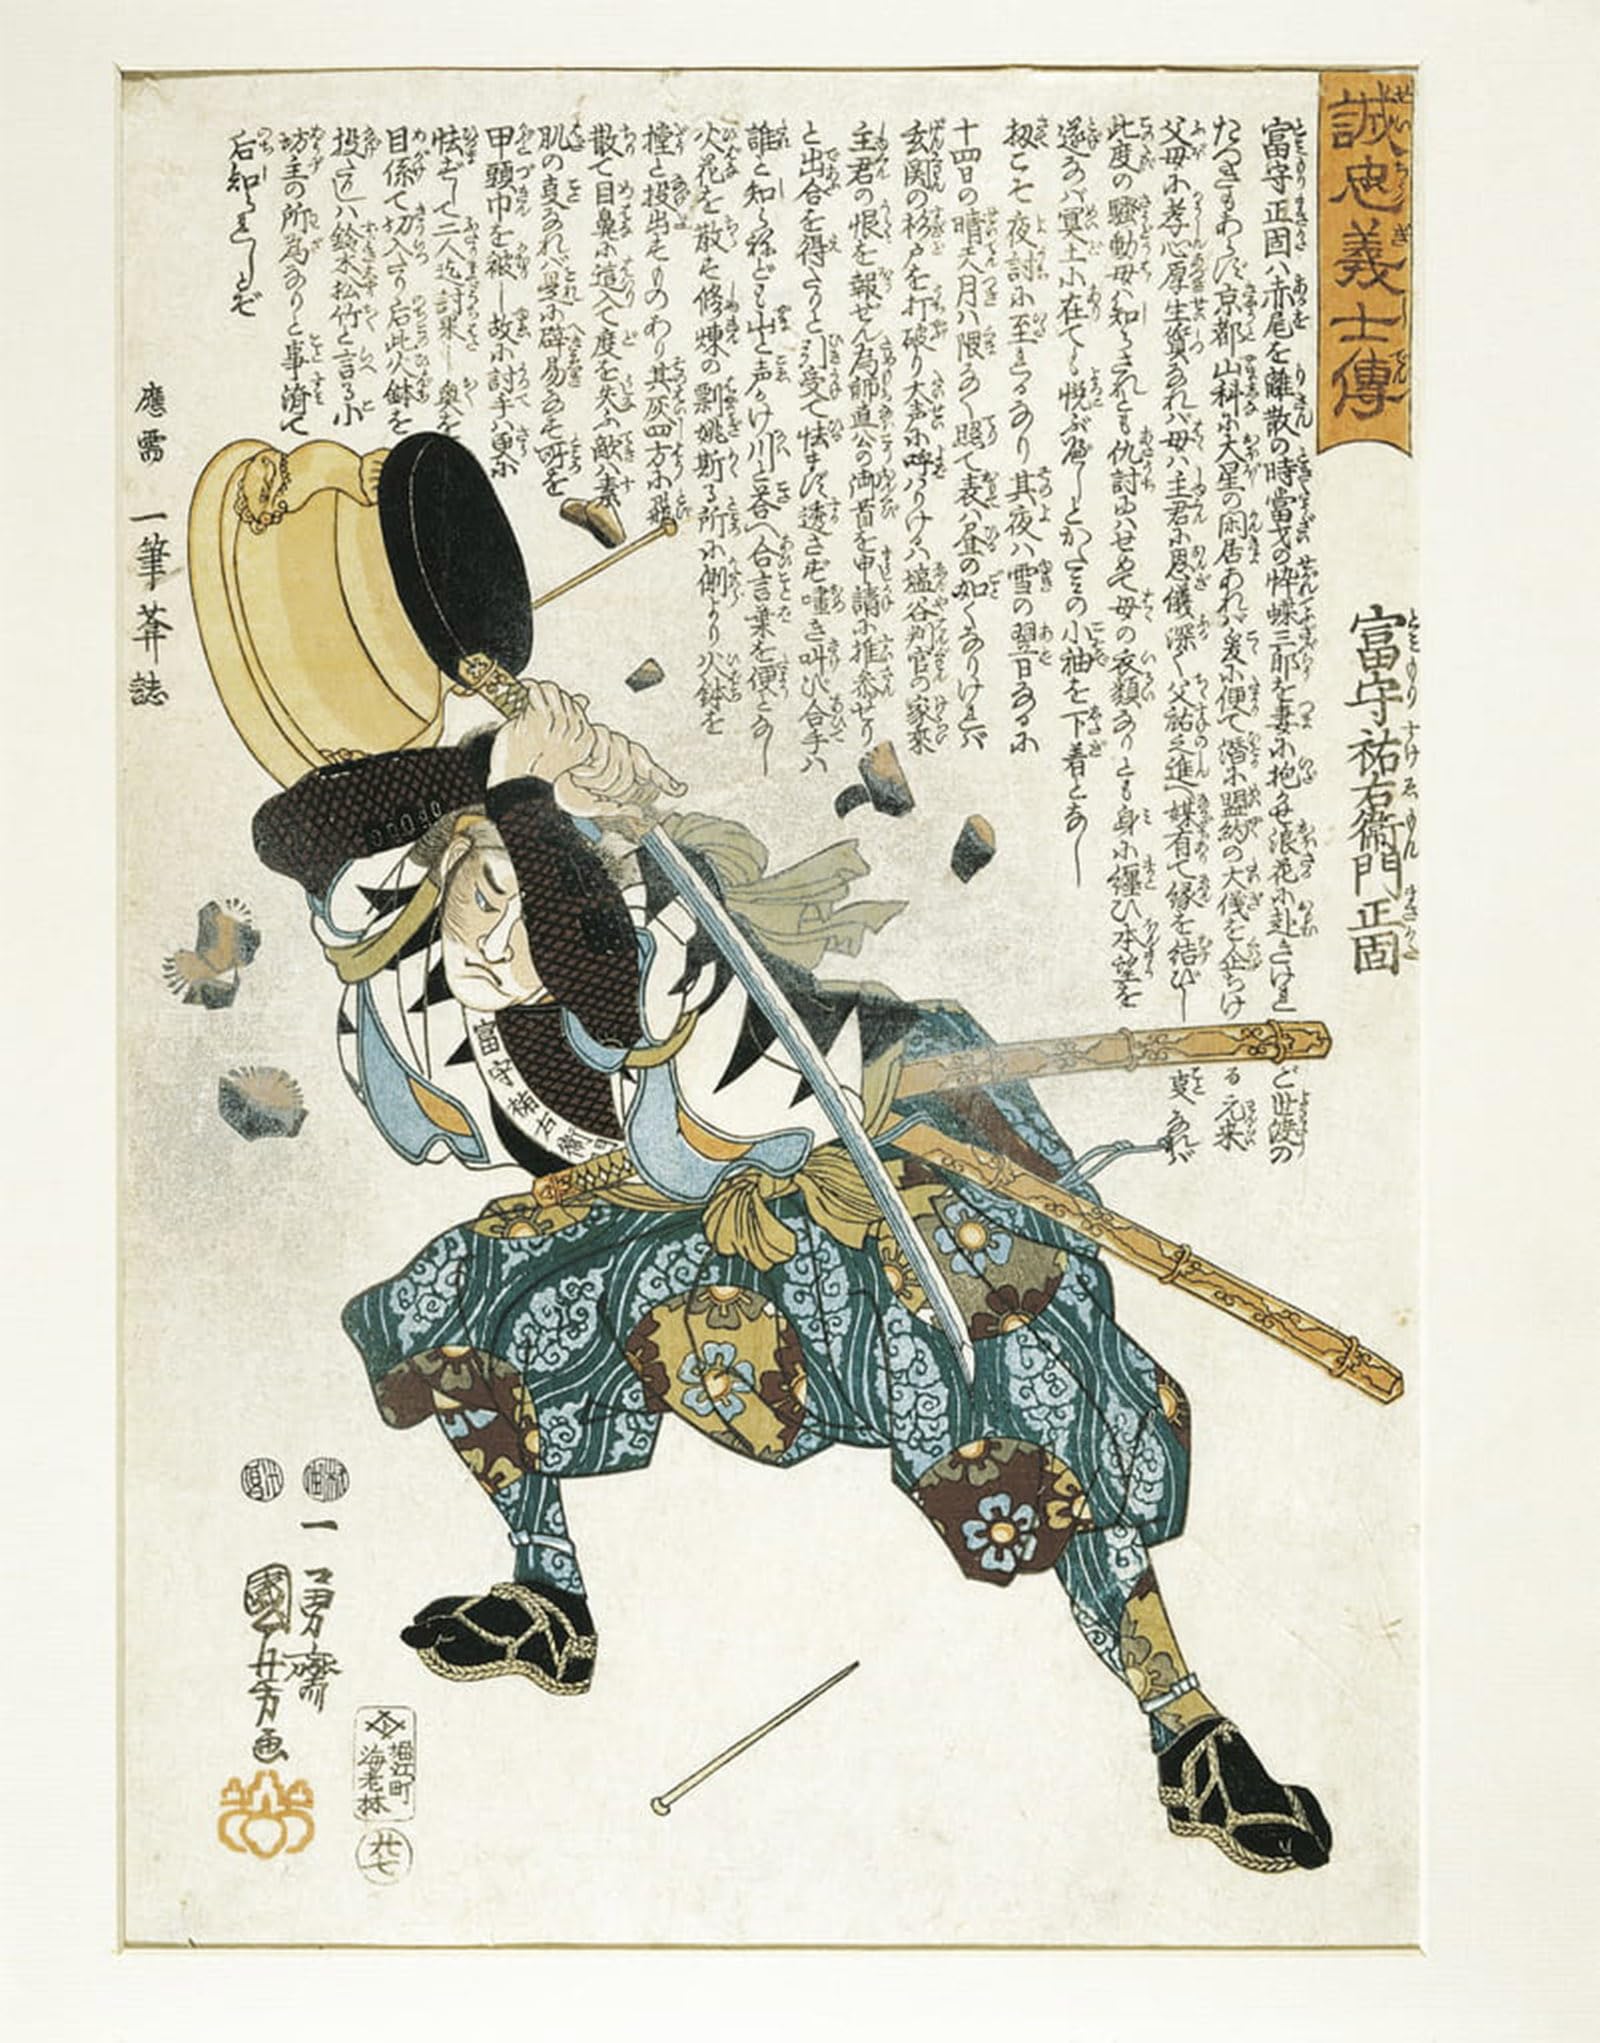 誠忠義士傳
富守祐右衛門正固
富守正固ハ赤尾を離散の時當才の忰蝶三郎を妻小抱かせ浪花小赴きけれど世渡の
たつきもあらず京都山科小大星の閑居あれバ爰小便て潜小盟約の大儀を企ちける元来
父母小孝心厚生質なれバ母ハ主君小恩儀深く父祐之進へ媒有て縁を結びし叓なれバ
此度の騒動母ハ知らされども仇討ゆハせめて母の衣類なりとも身小纒ひ本望を
遂なバ冥土小在ても悦ぶべしとかたみの小袖を下着となし
扨こそ夜討小至れるなり其夜ハ雪の翌日なる小
十四日の晴天月ハ隈なく照て表ハ昼の如くなりけれバ
玄関の杉戸を打破り大声小呼ハりけるハ塩谷判官の家来
主君の恨を報ぜん為師直公の御首を申請小推参せり
と出合を得たりと引受て怯まず透さず嘩き叫び合手ハ
誰と知らねども山と声かけ川と答へ合言葉を便となし
火花を散らす修煉の剽姚斯る所小側より火鉢を
撞と投出すものあり其灰四方小飛
散て目鼻小這入て度を失ふ敵ハ素
肌の叓なれバ是小辟易なす所を
甲頭巾を被し故小討手ハ更小
怯ずして二人迄討果し奥を
目係て切入たり后此火鉢を
投たりしハ鈴木松竹と言る小
坊主の所為なりと事済て
后知られしとぞ
應需 一筆葊誌
一勇齋
國芳画
堀江町
海老林
廿七